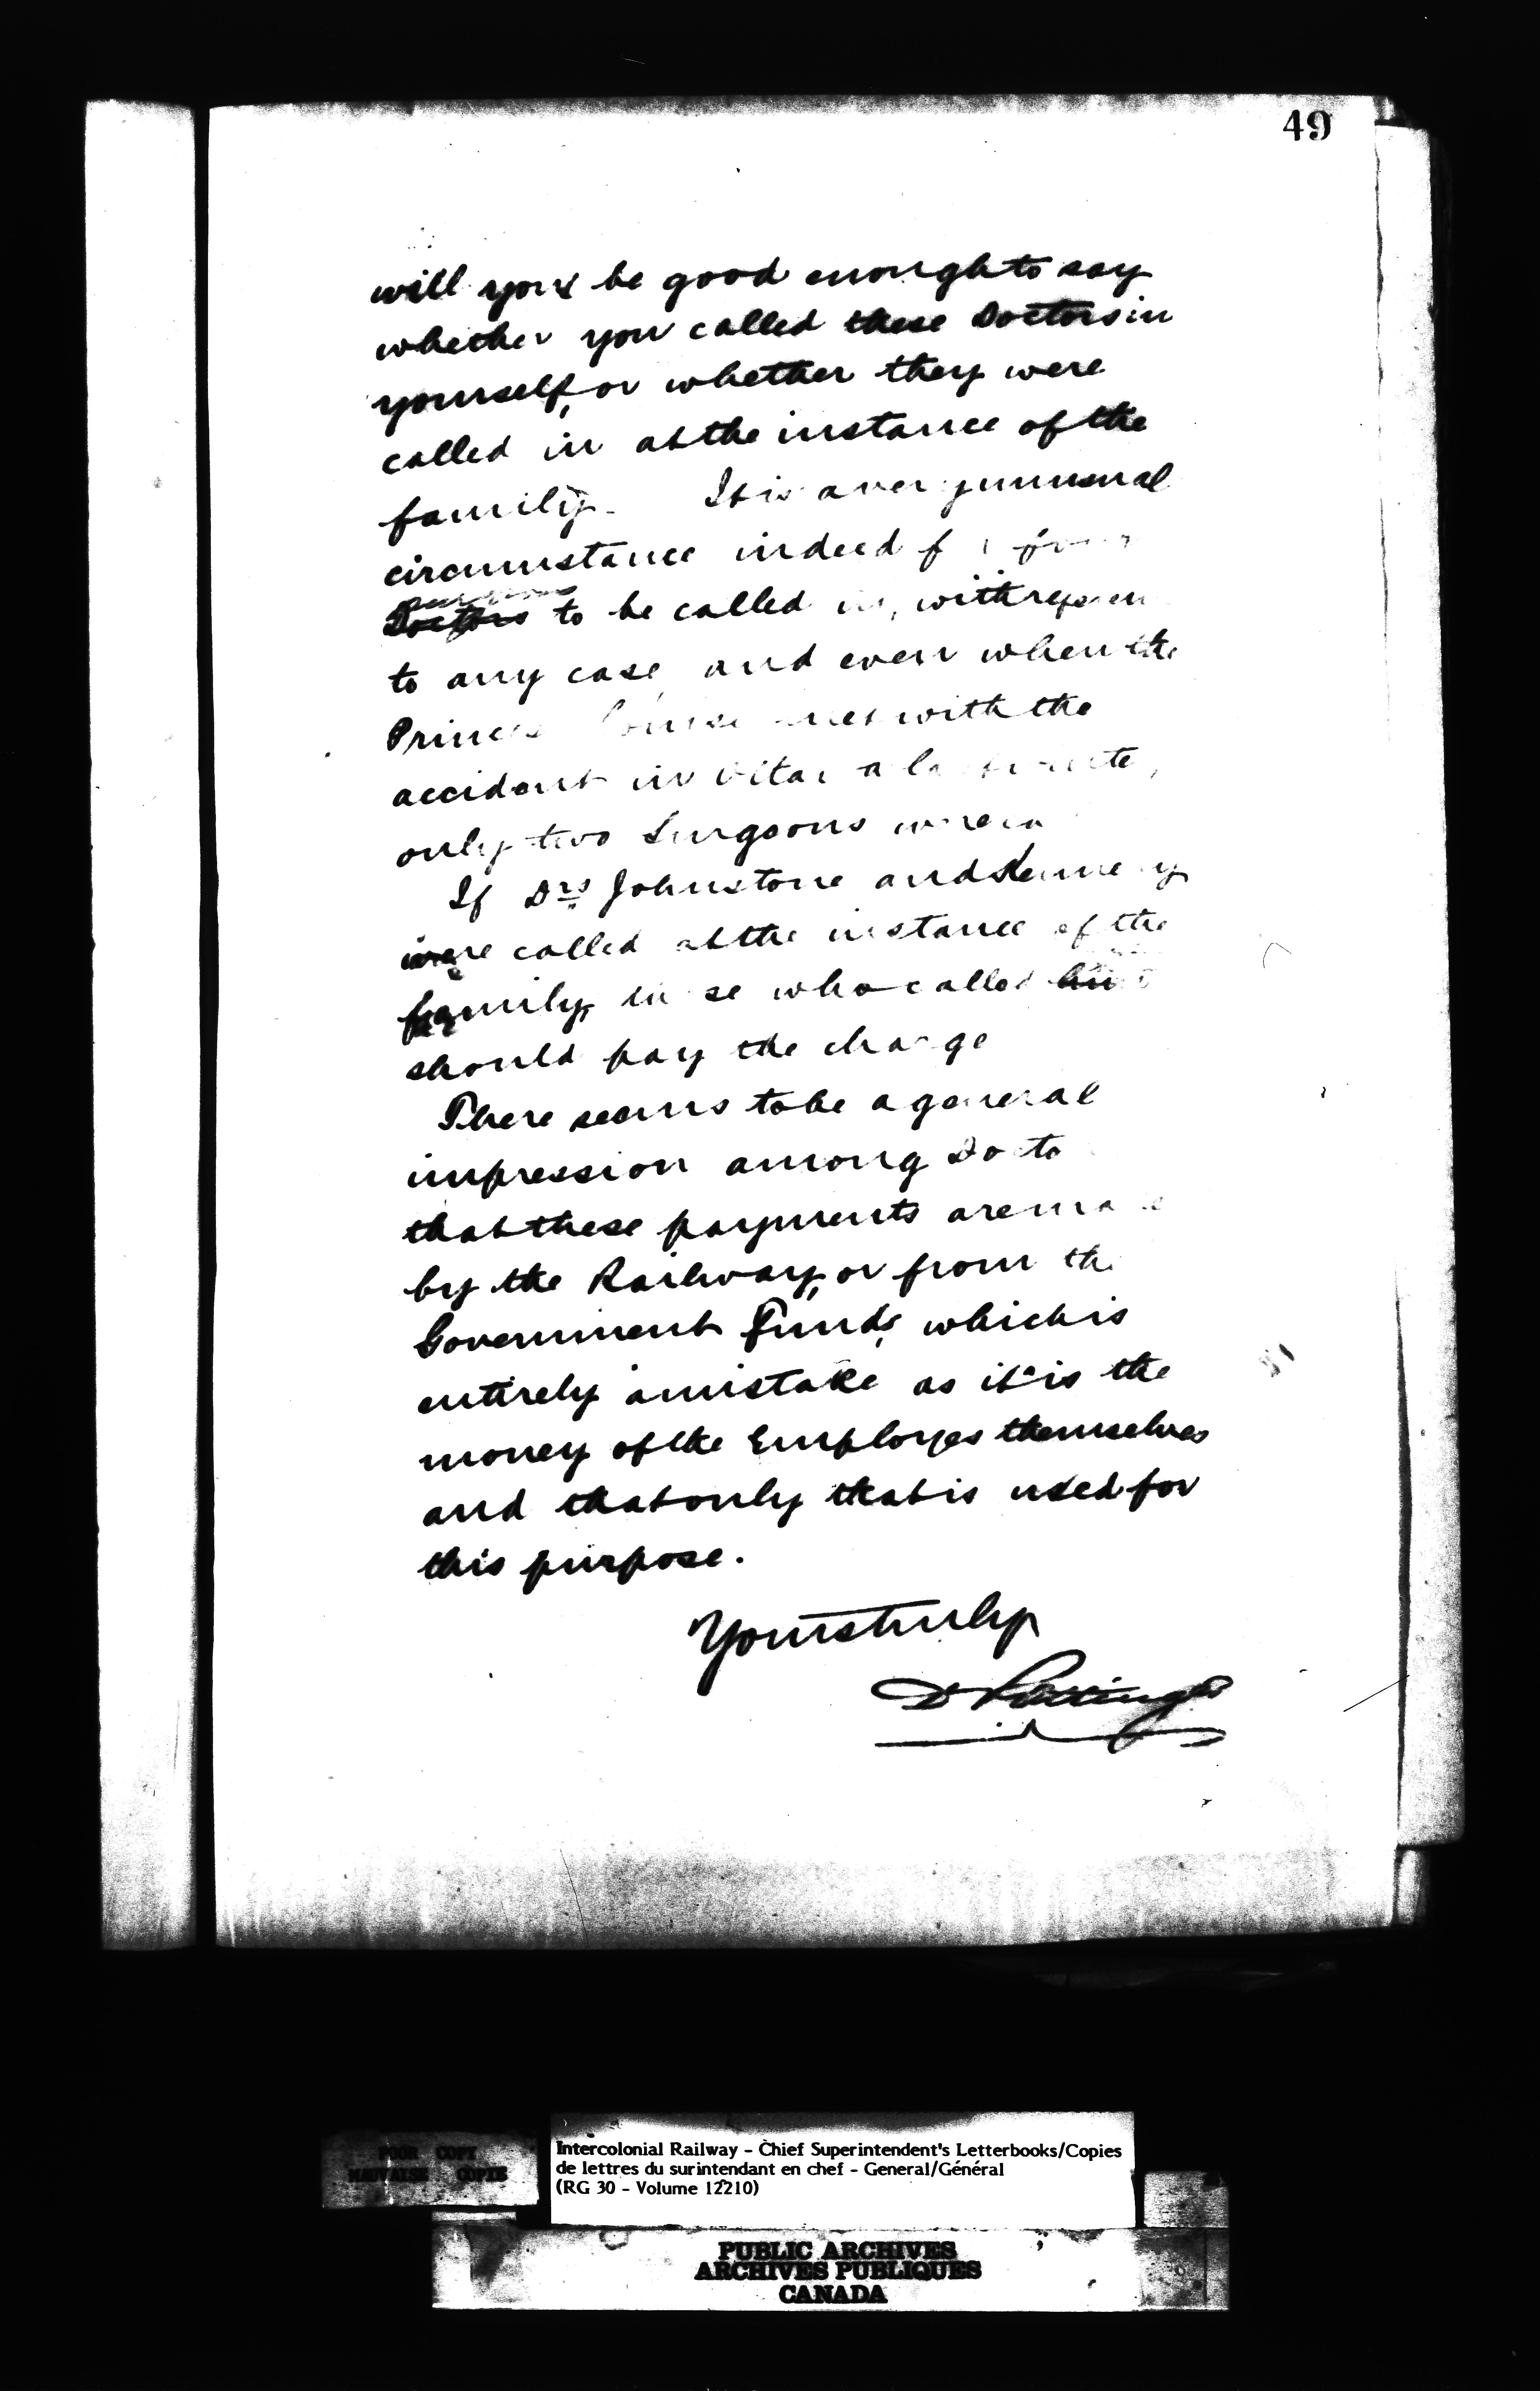 49
will you be good enough to say
whether you called these Doctors in
yourself, or whether they were
called in at the instance of the
family. It is a very unusual
circumstance indeed
Doctors to be called in, with
to any case, and even when the
Princess Louise met with the
accident in
only two Surgeons were
If Drs Johnstone and
were called at the instance of the
family, who called
should pay the charge
There seems to be a general
impression among
that these payments are
by the Railway, or from the
Government Funds, which is
entirely a mistake as it is the
money of the Employes themselves
and that only that is used for
this purpose.
Yours truly
D Pottinger
POOR COPY
MAUVAISE COPIE
Intercolonial Railway - Chief Superintendent's Letterbooks/Copies
de lettres du surintendant en chef - General/Général
(RG 30 - Volume 12210)
PUBLIC ARCHIVES
ARCHIVES PUBLIQUES
CANADA